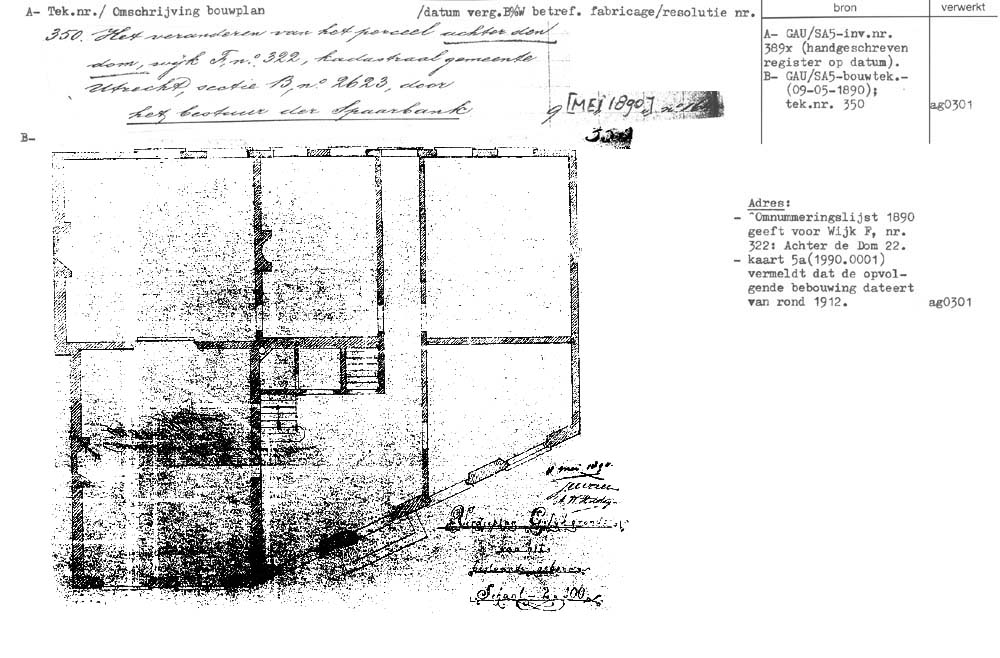 A- Tek.nr./ Omschrijving bouwplan /datum verg.B%W betref. fabricage/resolutie nr.
bron
verwerkt
350. Het veranderen van het perceel achter den
dom, wijk F, nº 322, kadastraal gemeente
Utrecht, sectie B, nº 2623, door
het bestuur der Spaarbank
9 [MEI 1890]
A- GAU/SA5-inv.nr.
389x (handgeschreven
register op datum).
B- GAU/SA5-bouwtek.-
(09-05-1890);
tek.nr. 350
ag0301
B-
Adres:
- Omnummeringslijst 1890
geeft voor Wijk F, nr.
322: Achter de Dom 22.
- kaart 5a(1990.0001)
vermeldt dat de opvol-
gende bebouwing dateert
van rond 1912.
ag0301
mei 1890.
Schaal